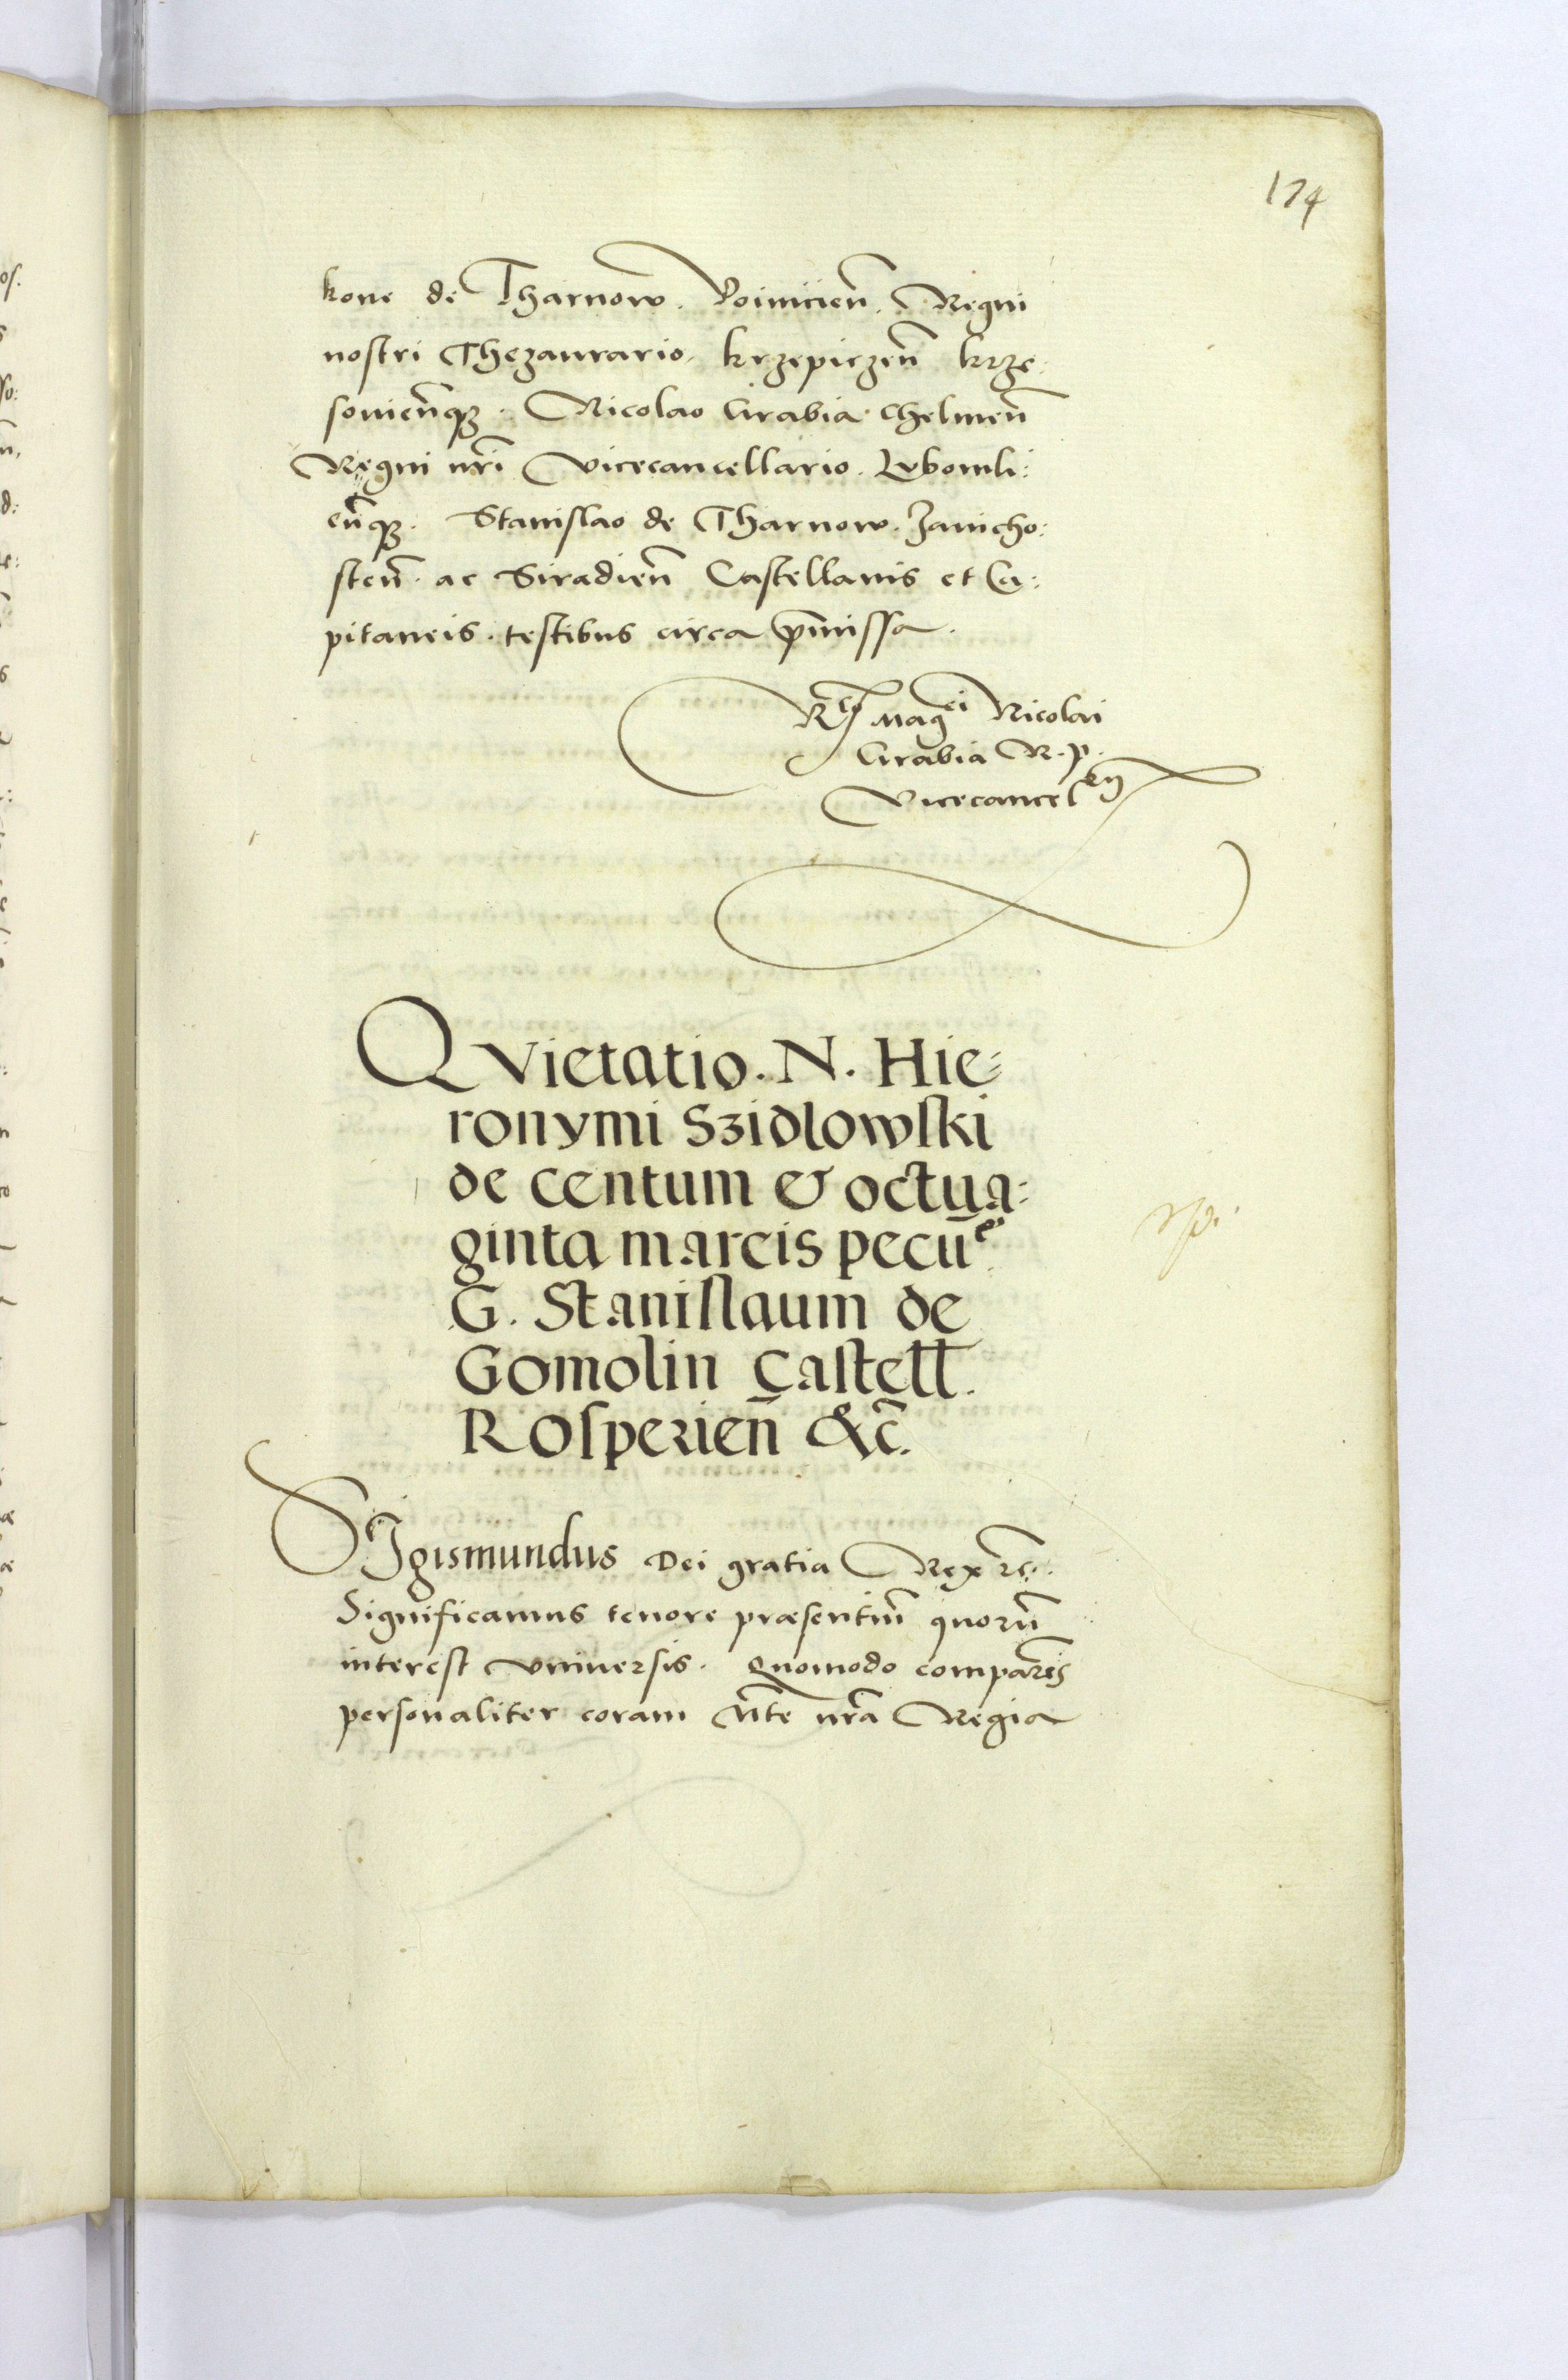 174
kone de Tharnow. Voinicieñ. Regni
nostri Thezaurario. krzepiczeñ krze:
sovieñqꝫ. Nicolao Grabia chelmeñ
Regni nr̃i Vicecancellario. Lvbomli:
eñqꝫ. Stanislao de Tharnow. Zavicho:
steñ. ac Siradieñ Castellanis et Ca:
pitaneis. testibus circa p̃missa.
Magci Nicolai
Grabia R. p.
Vicecancelrij
QVietatio. N. Hie:
ronymi Szidlowski
de centum & octua:
ginta marcis pecūe
G. Stanislaum de
Gomolin Castell.
Rosperieñ &c̃.
SIgismundus Dei gratia Rex ꝛc̃.
Significamus tenore præsentiũ quorũ
interest vniuersis. Quomodo comparẽs
personaliter coram Mte nr̃a Regia